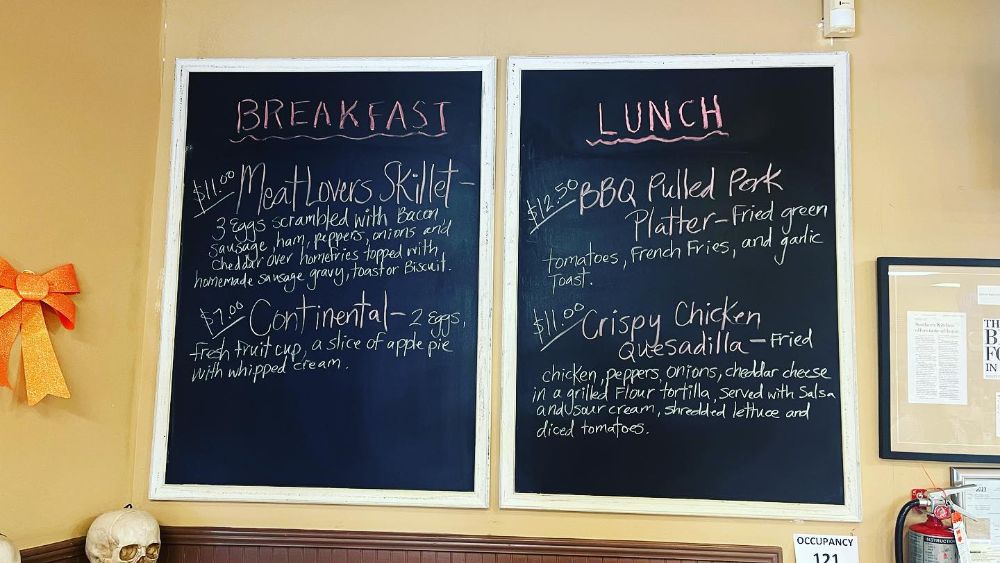 BREAKFAST
$11.00 Meat Lovers Skillet -
3 Eggs scrambled with Bacon,
sausage, ham, peppers, onions and
cheddar over homefries topped with
homemade sausage gravy, toast or Biscuit.
$7.00 Continental - 2 eggs,
fresh fruit cup, a slice of apple pie
with whipped cream.
LUNCH
$12.50 BBQ Pulled Pork
Platter - Fried green
tomatoes, French Fries, and garlic
Toast.
$11.00 Crispy Chicken
Quesadilla - Fried
chicken, peppers, onions, cheddar cheese
in a grilled Flour tortilla, served with Salsa
and sour cream, shredded lettuce and
diced tomatoes.
OCCUPANCY
121